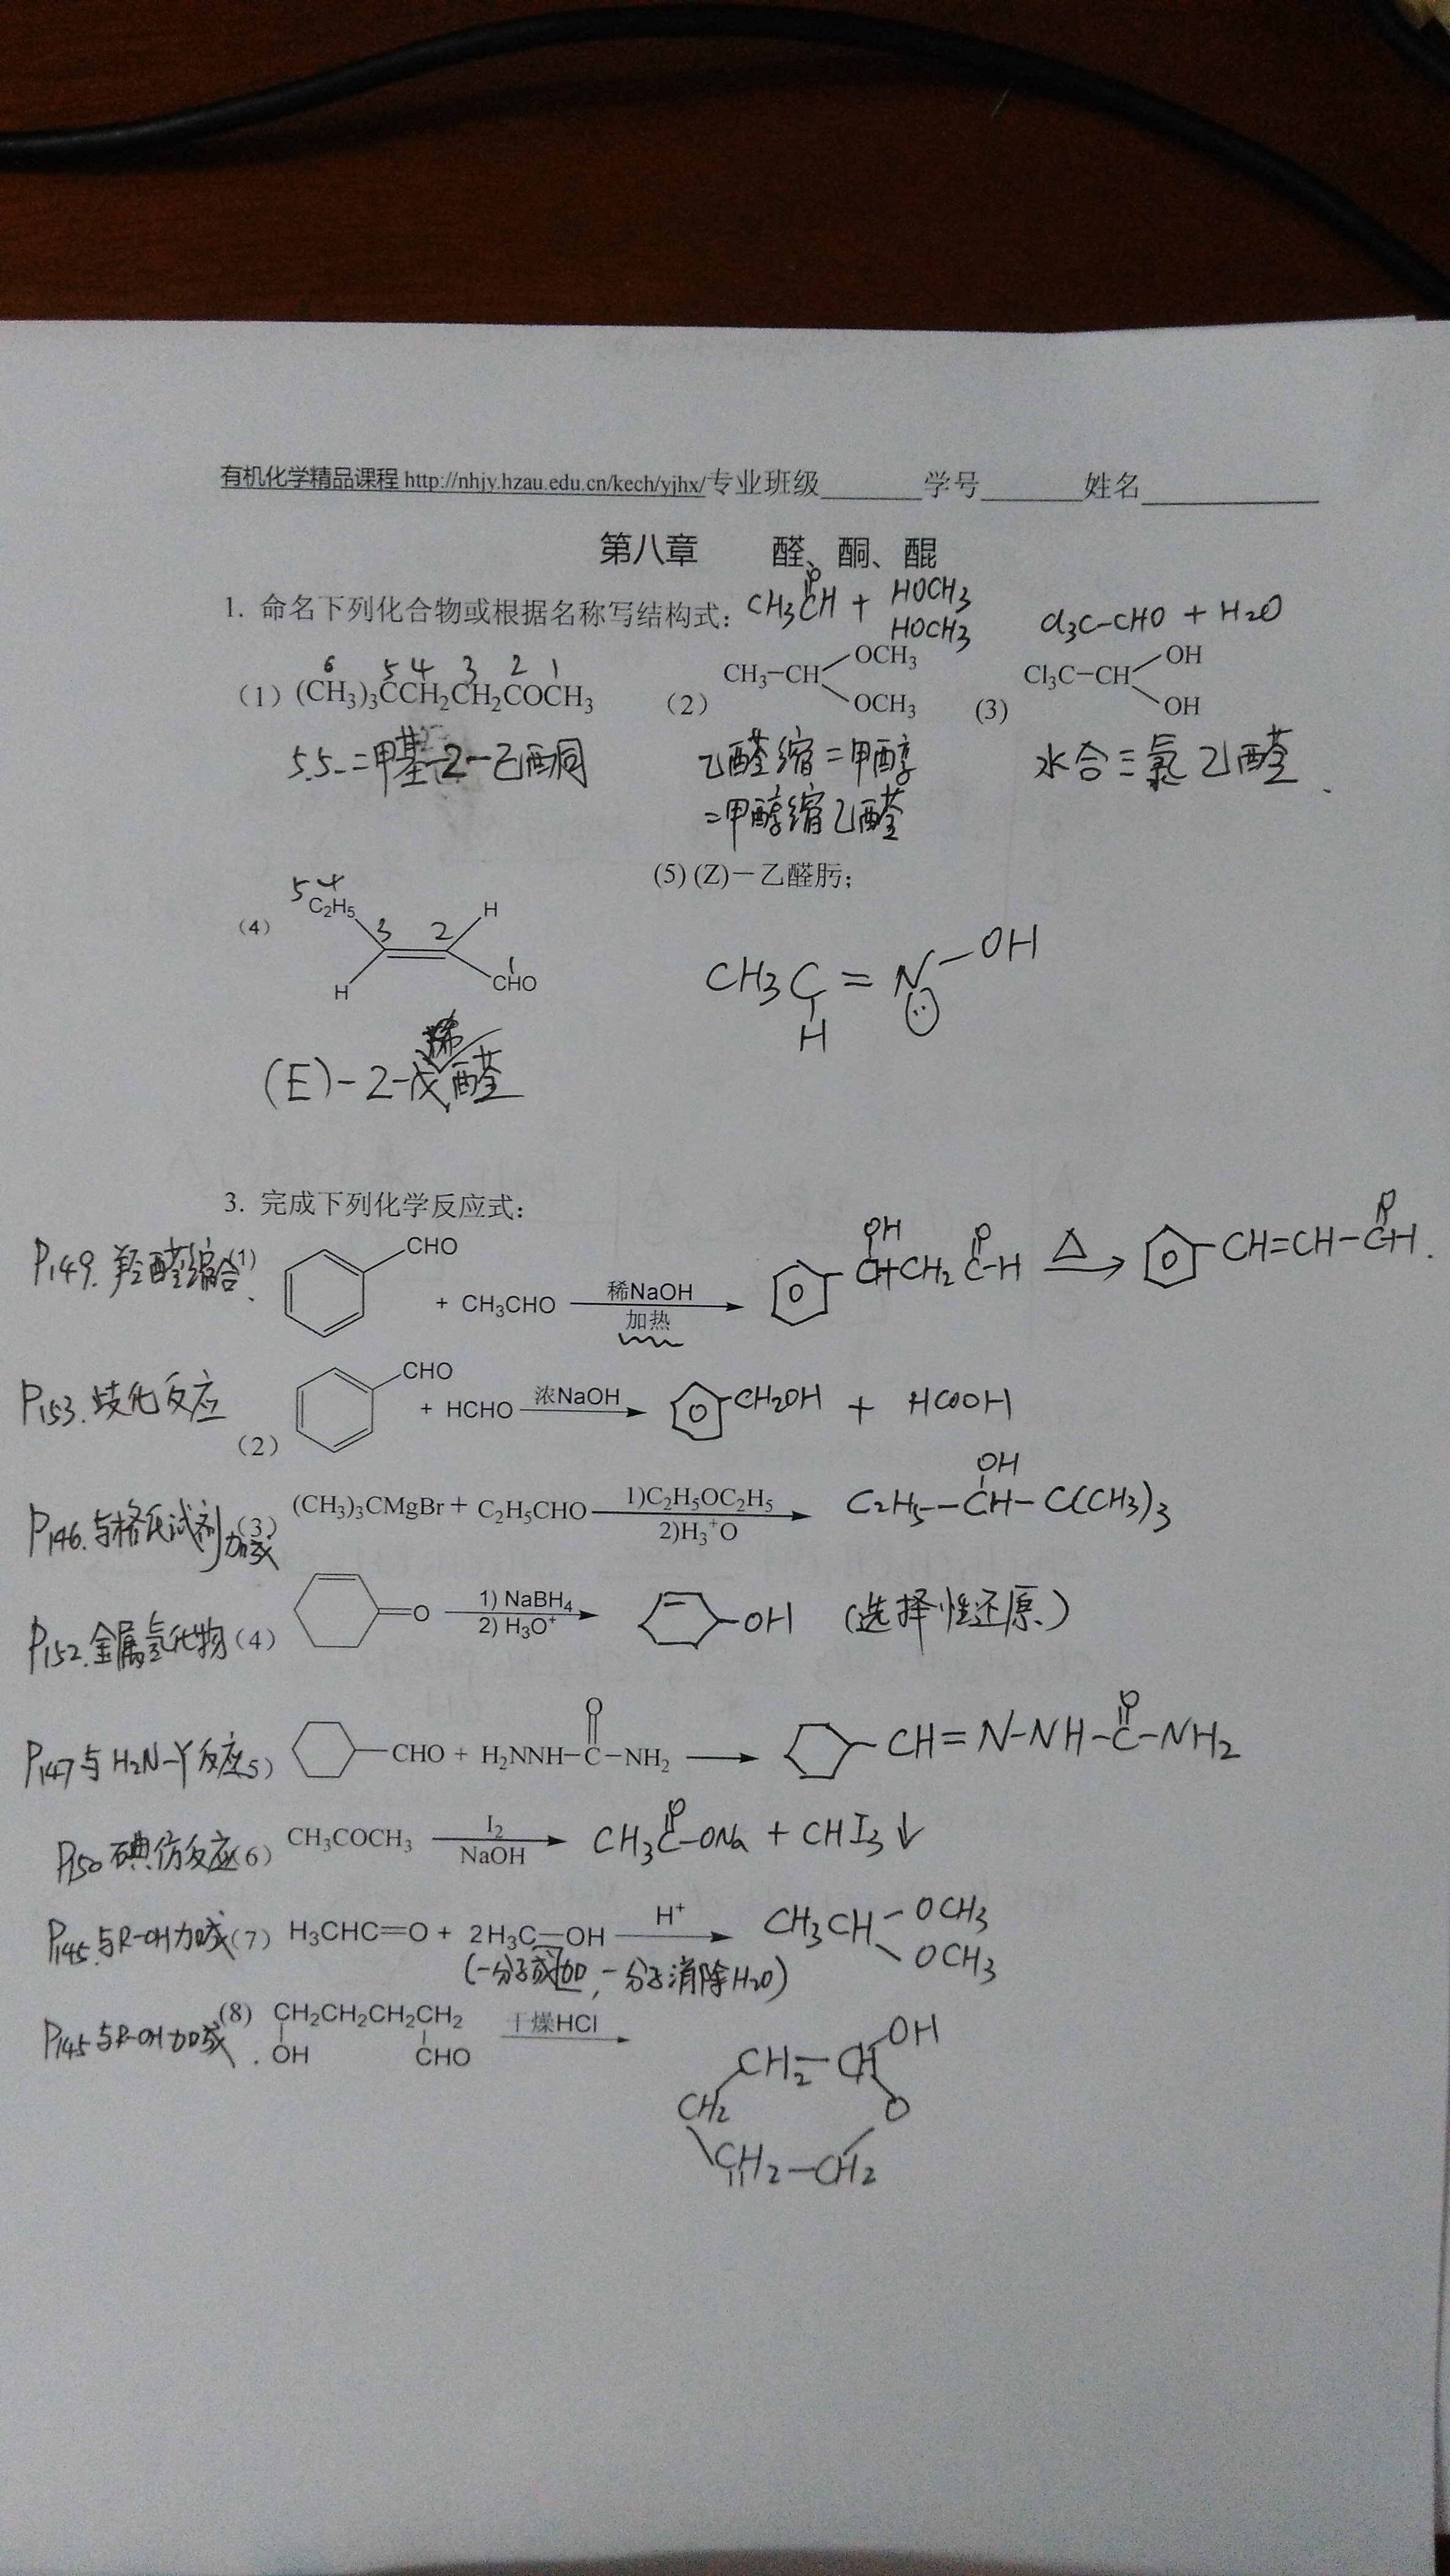 有机化学精品课程 http://nhjy.hzau.edu.cn/kech/yjhx/专业班级______学号______姓名__________
第八章 醛、酮、醌
1. 命名下列化合物或根据名称写结构式:
CH3CH + HOCH3
O
HOCH3
Cl3C-CHO + H2O
6 5 4 3 2 1
(1) (CH3)3CCH2CH2COCH3
(2) CH3-CH OCH3
OCH3
(3) Cl3C-CH OH
OH
5.5-二甲基-2-己酮
乙醛缩二甲醇
=甲醇缩乙醛
水合三氯乙醛
(4) C2H5 H
H CHO
5 4 3 2 1
(E)-2-戊烯醛
(5) (Z)-乙醛肟;
CH3C=N-OH
H
3. 完成下列化学反应式:
P149. 羟醛缩合
(1) CHO + CH3CHO 稀NaOH 加热
OH O
CHCH2C-H △ CH=CH-CH
O
P153. 歧化反应
(2) CHO + HCHO 浓NaOH CH2OH + HCOOH
P146. 与格氏试剂加成
(3) (CH3)3CMgBr + C2H5CHO 1)C2H5OC2H5 2)H3+O
OH
C2H5-CH-C(CH3)3
P152. 金属氢化物
(4) =O 1) NaBH4 2) H3O+ -OH (选择性还原)
P147 与H2N-Y反应
5) -CHO + H2NNH-C-NH2 -CH=N-NH-C-NH2
O O
P150 碘仿反应
(6) CH3COCH3 I2 NaOH CH3C-ONa + CHI3↓
O
P145. 与R-OH加成
(7) H3CHC=O + 2H3C-OH H+ CH3CH OCH3
OCH3
(一分子加成, 一分子消除H2O)
P145 与R-OH加成.
(8) CH2CH2CH2CH2 干燥HCl
OH CHO
CH2-CH OH
CH2 O
CH2-CH2